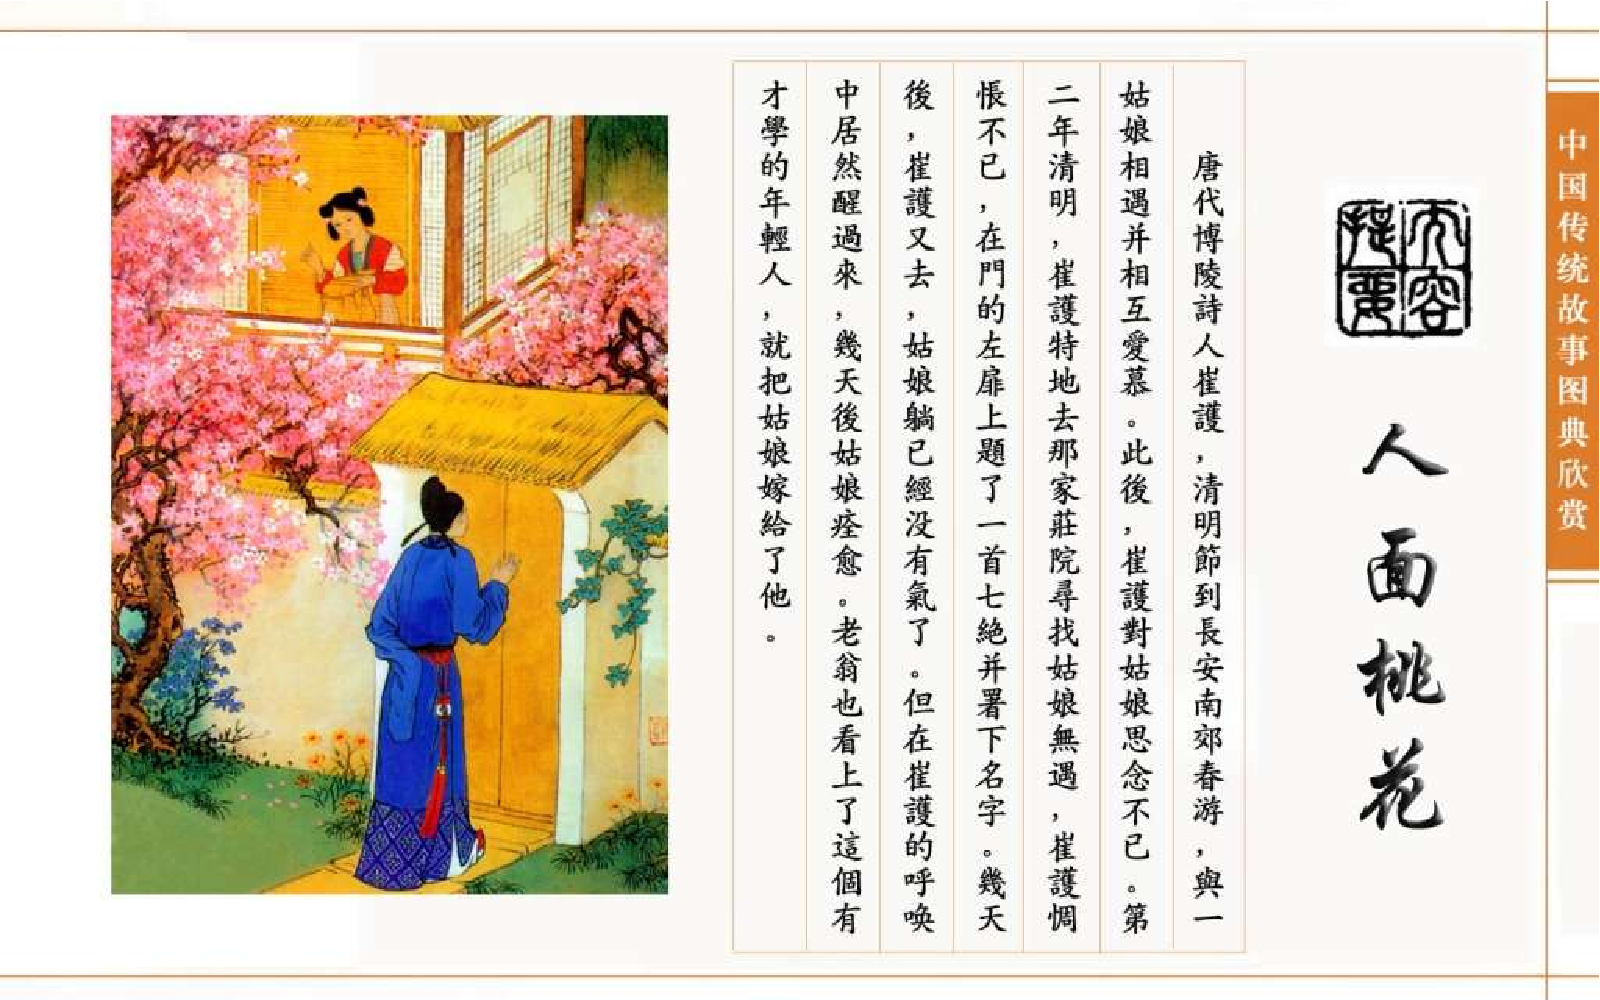 中国传统故事图典欣赏
内容提要
人面桃花
唐代博陵詩人崔護,清明節到長安南郊春游,與一
姑娘相遇并相互愛慕。此後,崔護對姑娘思念不已。第
二年清明,崔護特地去那家莊院尋找姑娘無遇,崔護惆
悵不已,在門的左扉上題了一首七絶并署下名字。幾天
後,崔護又去,姑娘躺已經没有氣了。但在崔護的呼喚
中居然醒過來,幾天後姑娘痊愈。老翁也看上了這個有
才學的年輕人,就把姑娘嫁給了他。